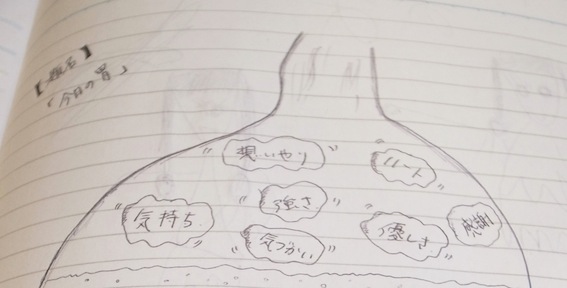 【題名】
「今日の胃」
想いやり
ハート
強さ
気持ち
気づかい
優しさ
感謝!